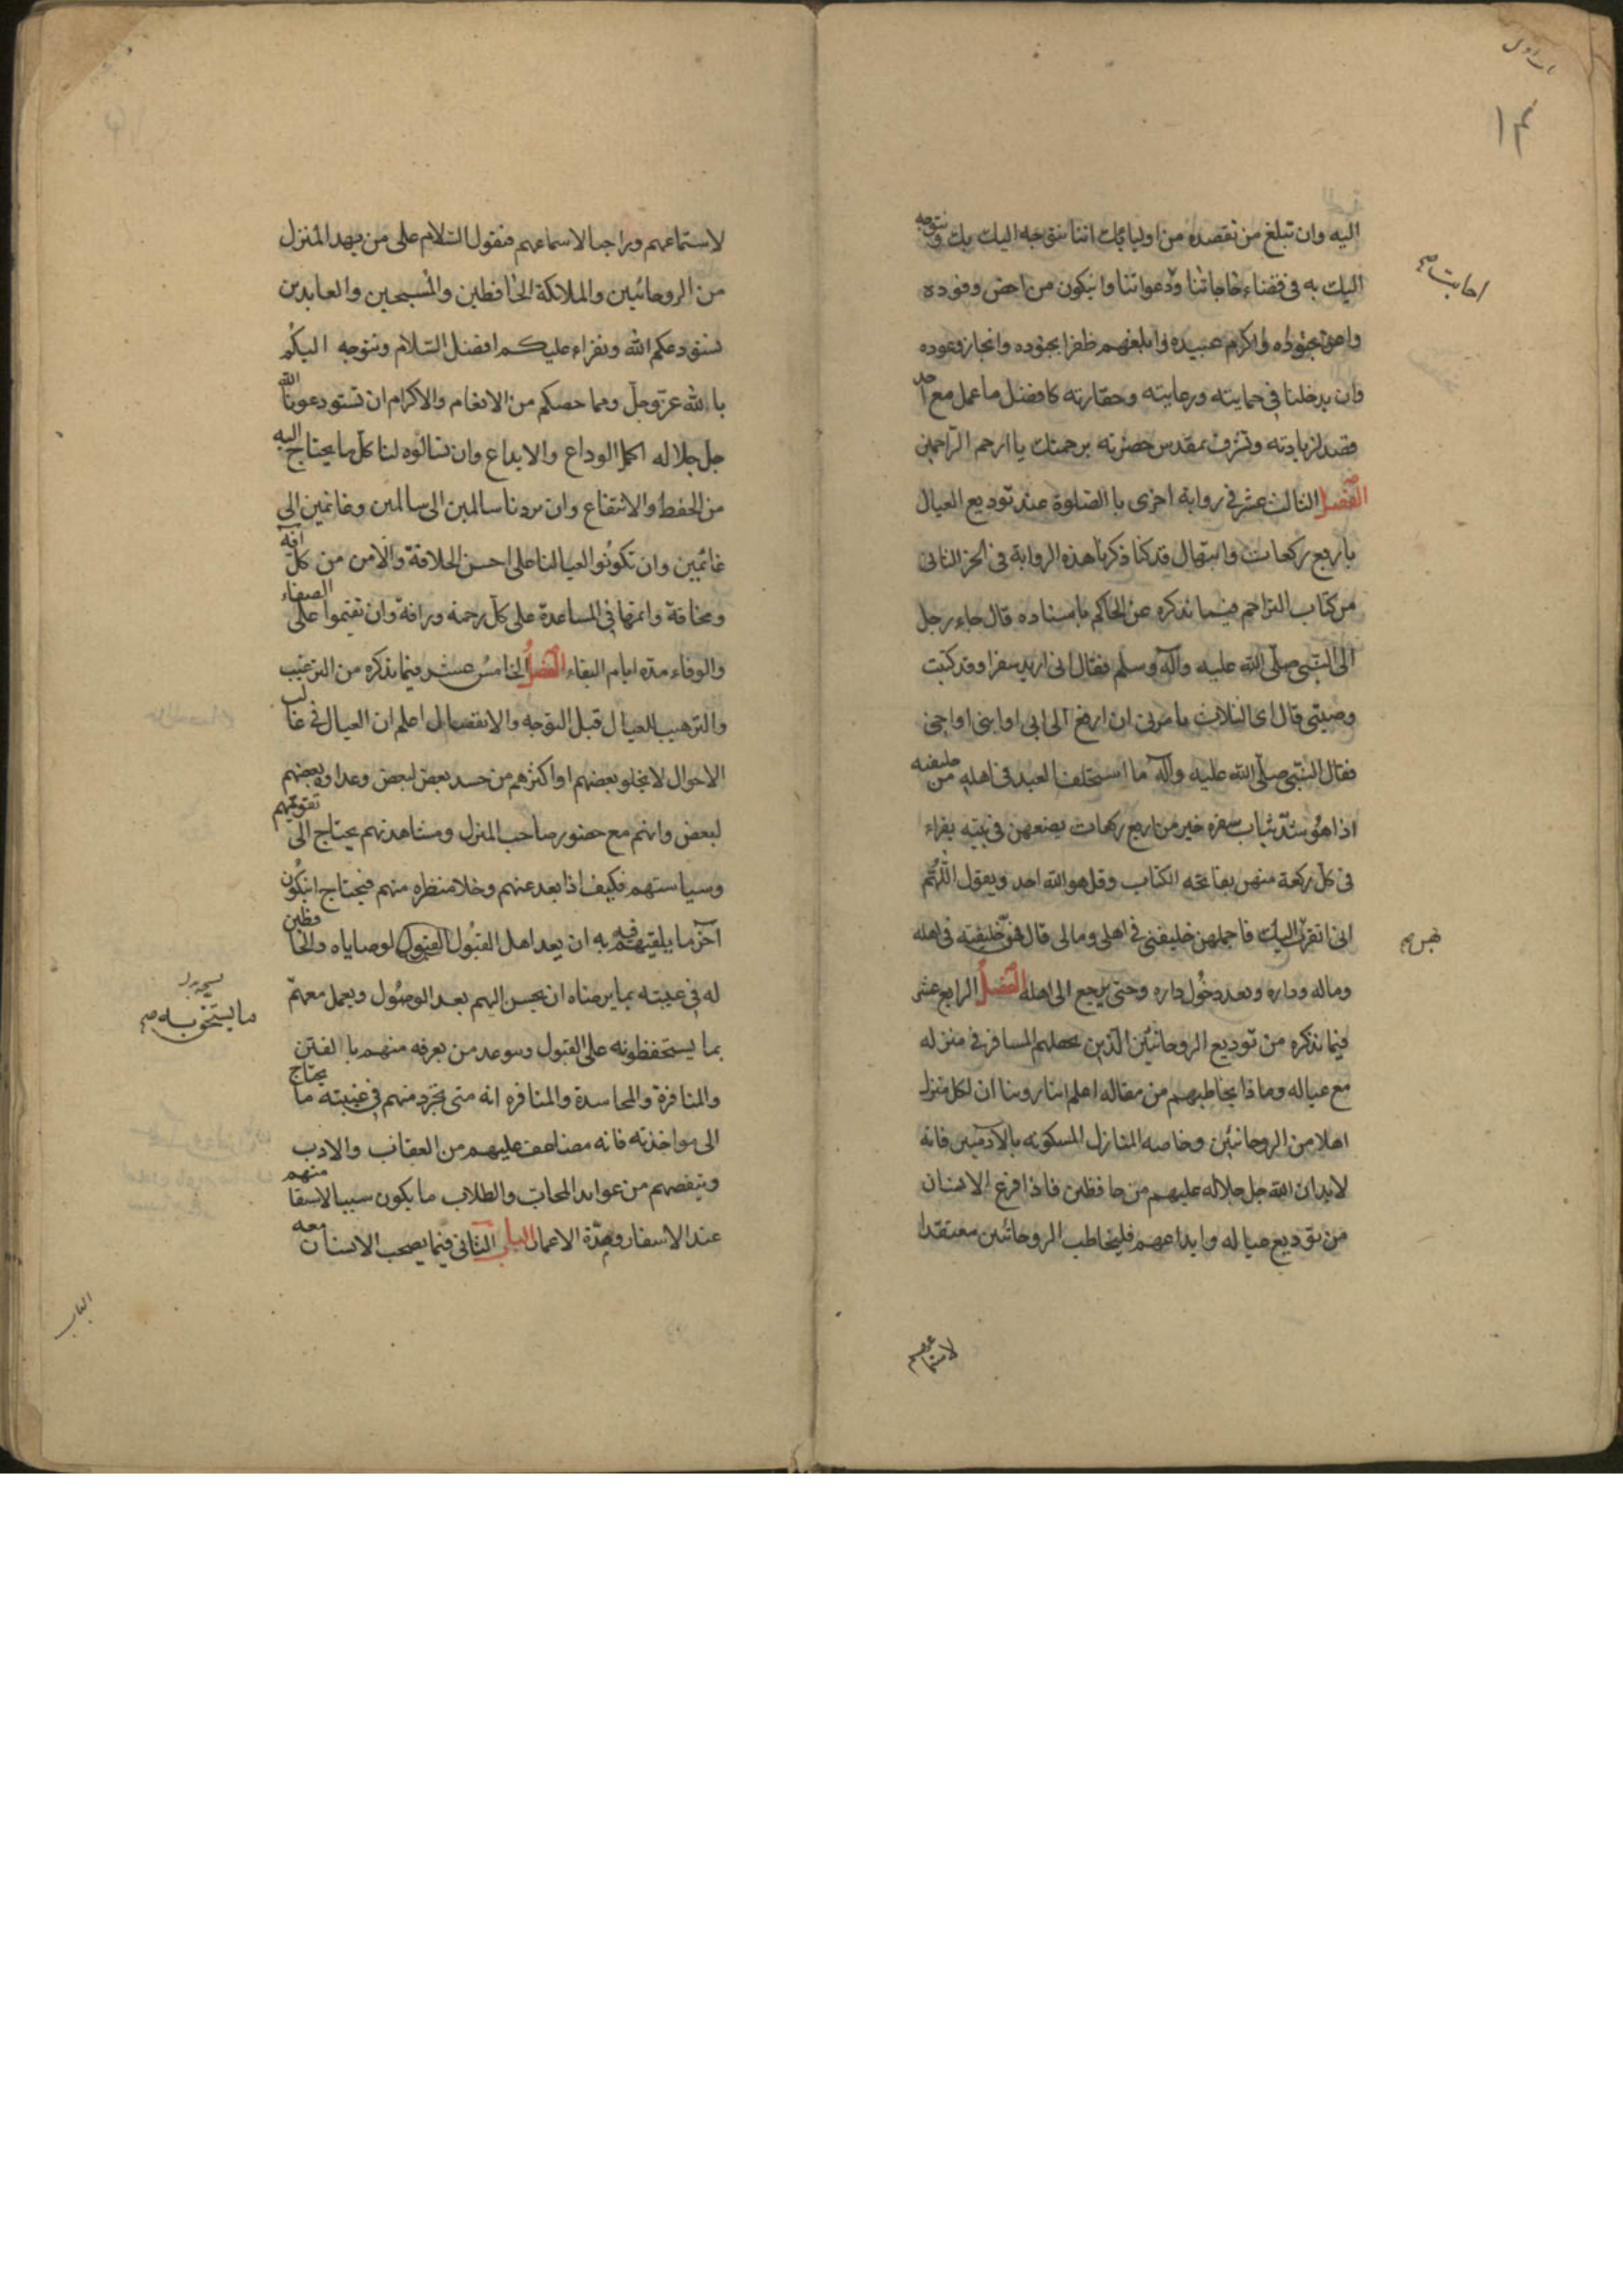 ١٣
اليه وان تبلغ من نقصده من اوليائك اننا نتوجه اليك بك ونتوجه
اليك به فى قضاء حاجاتنا ودعواتنا وان يكون من اخص وفوده
واعز جنوده واكرم عبيده وابلغهم ظفرا بجوده وانجاز وعوده
وان يدخلنا فى حمايته ورعايته وخفارته كافضل ما عمل مع احد
قصد لزيارته وتشرف بمقدس حضرته برحمتك يا ارحم الراحمين
الفصل الثالث عشر فى رواية اخرى بالصلوة عند توديع العيال
باربع ركعات وابتهال قد كنا ذكرنا هذه الرواية فى الجزء الثانى
من كتاب التراجم فيما نذكره عن الحاكم باسناده قال جاء رجل
الى النبى صلى الله عليه وآله وسلم فقال انى اريد سفرا وقد كتبت
وصيتى قال اى الثلاث تامرنى ان ادفع الى ابى او ابنى او اخى
فقال النبى صلى الله عليه وآله ما استخلف العبد فى اهله من خليفة
اذا هو شد ثياب سفره خير من اربع ركعات يصنعهن فى بيته يقراء
فى كل ركعة منهن بفاتحة الكتاب وقل هو الله احد ويقول اللهم
انى اتقرب اليك فاجعلهن خليفتى فى اهلى ومالى قال فهن خليفته فى اهله
وماله وداره وبعد دخول داره وحتى يرجع الى اهله الفصل الرابع عشر
فيما نذكره من توديع الروحانيين الذين يخلفهم المسافر فى منزله
مع عياله وماذا يخاطبهم من مقاله اعلم اننا روينا ان لكل منزل
اهلا من الروحانيين وخاصه المنازل المسكونه بالآدميين فانه
لابد ان الله جل جلاله عليهم من حافظين فاذا فرغ الانسان
من توديع عياله وايداعهم فليخاطب الروحانيين معتقدا
لاستماعهم
لاستماعهم وراجيا لاسماعهم فنقول السلام على من بهذا المنزل
من الروحانيين والملائكة الحافظين والمسبحين والعابدين
نستودعكم الله ونقراء عليكم افضل السلام ونتوجه اليكم
بالله عز وجل وبما خصكم من الانعام والاكرام ان تستودعونا الله
جل جلاله اكمل الوداع والايداع وان تسالوه لنا كل ما يحتاج اليه
من الحفظ والانتفاع وان يردنا سالمين الى سالمين وغانمين الى
غانمين وان تكونوا لعيالنا على احسن الخلافة والامن من كل آفة
ومخافة واتمها فى المساعدة على كل رحمة ورافة وان تقيموا على الصفاء
والوفاء مدة ايام البقاء الفصل الخامس عشر فيما نذكره من الترغيب
والترهيب للعيال قبل التوجه والانفصال اعلم ان العيال فى غالب
الاحوال لا يخلو بعضهم او اكثرهم من حسد بعض لبعض وعداوة بعضهم
لبعض وانهم مع حضور صاحب المنزل ومشاهدتهم يحتاج الى تقويمهم
وسياستهم فكيف اذا بعد عنهم وخلا منظره منهم فيحتاج ان يكون
آخر ما يلقيهم به ان يعد اهل القبول القبول لوصاياه والحافظين
له فى غيبته بما يرضاه ان يحسن اليهم بعد الوصول ويعمل معهم
ما يستحقونه
بما يستحفظونه على القبول ويتوعد من يعرفه منهم بالفتن
والمنافرة والمحاسدة والمنافره انه متى تجرد منهم فى غيبته ما يحتاج
الى مواخذته فانه مضاعف عليهم من العقاب والادب
وينقصهم من عوايد المحاب والطلاب ما يكون سببا لاسقا منهم
عند الاسفار وهذه الاعمال الباب الثانى فيما يصحب الانسان معه
الباب